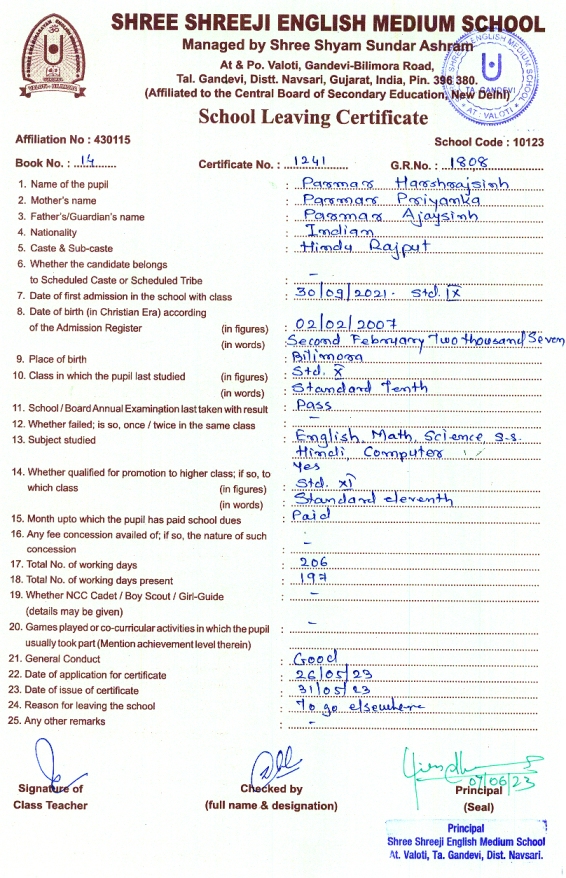 SHREE SHREEJI ENGLISH MEDIUM SCHOOL
Managed by Shree Shyam Sundar Ashram
At & Po. Valoti, Gandevi-Bilimora Road,
Tal. Gandevi, Distt. Navsari, Gujarat, India, Pin. 396 380.
(Affiliated to the Central Board of Secondary Education, New Delhi)
School Leaving Certificate
Affiliation No : 430115
School Code : 10123
Book No. : 14 Certificate No. : 1241 G.R.No. : 1808
1. Name of the pupil : Parmar Harshrajsinh
2. Mother's name : Parmar Priyanka
3. Father's/Guardian's name : Parmar Ajaysinh
4. Nationality : Indian
5. Caste & Sub-caste : Hindu Rajput
6. Whether the candidate belongs
to Scheduled Caste or Scheduled Tribe : -
7. Date of first admission in the school with class : 30/09/2021. Std. IX
8. Date of birth (in Christian Era) according
of the Admission Register (in figures) : 02/02/2007
(in words) : Second February Two thousand Seven
9. Place of birth : Bilimora
10. Class in which the pupil last studied (in figures) : Std. X
(in words) : Standard Tenth
11. School / Board Annual Examination last taken with result : Pass
12. Whether failed; is so, once / twice in the same class : -
13. Subject studied : English, Math, Science S.S.
Hindi, Computer
14. Whether qualified for promotion to higher class; if so, to : Yes
which class (in figures) : Std. XI
(in words) : Standard eleventh
15. Month upto which the pupil has paid school dues : Paid
16. Any fee concession availed of; if so, the nature of such
concession : -
17. Total No. of working days : 206
18. Total No. of working days present : 197
19. Whether NCC Cadet / Boy Scout / Girl-Guide : -
(details may be given)
20. Games played or co-curricular activities in which the pupil : -
usually took part (Mention achievement level therein)
21. General Conduct : Good
22. Date of application for certificate : 26/05/23
23. Date of issue of certificate : 31/05/23
24. Reason for leaving the school : To go elsewhere
25. Any other remarks : -
07/06/23
Signature of Checked by Principal
Class Teacher (full name & designation) (Seal)
Principal
Shree Shreeji English Medium School
At. Valoti, Ta. Gandevi, Dist. Navsari.